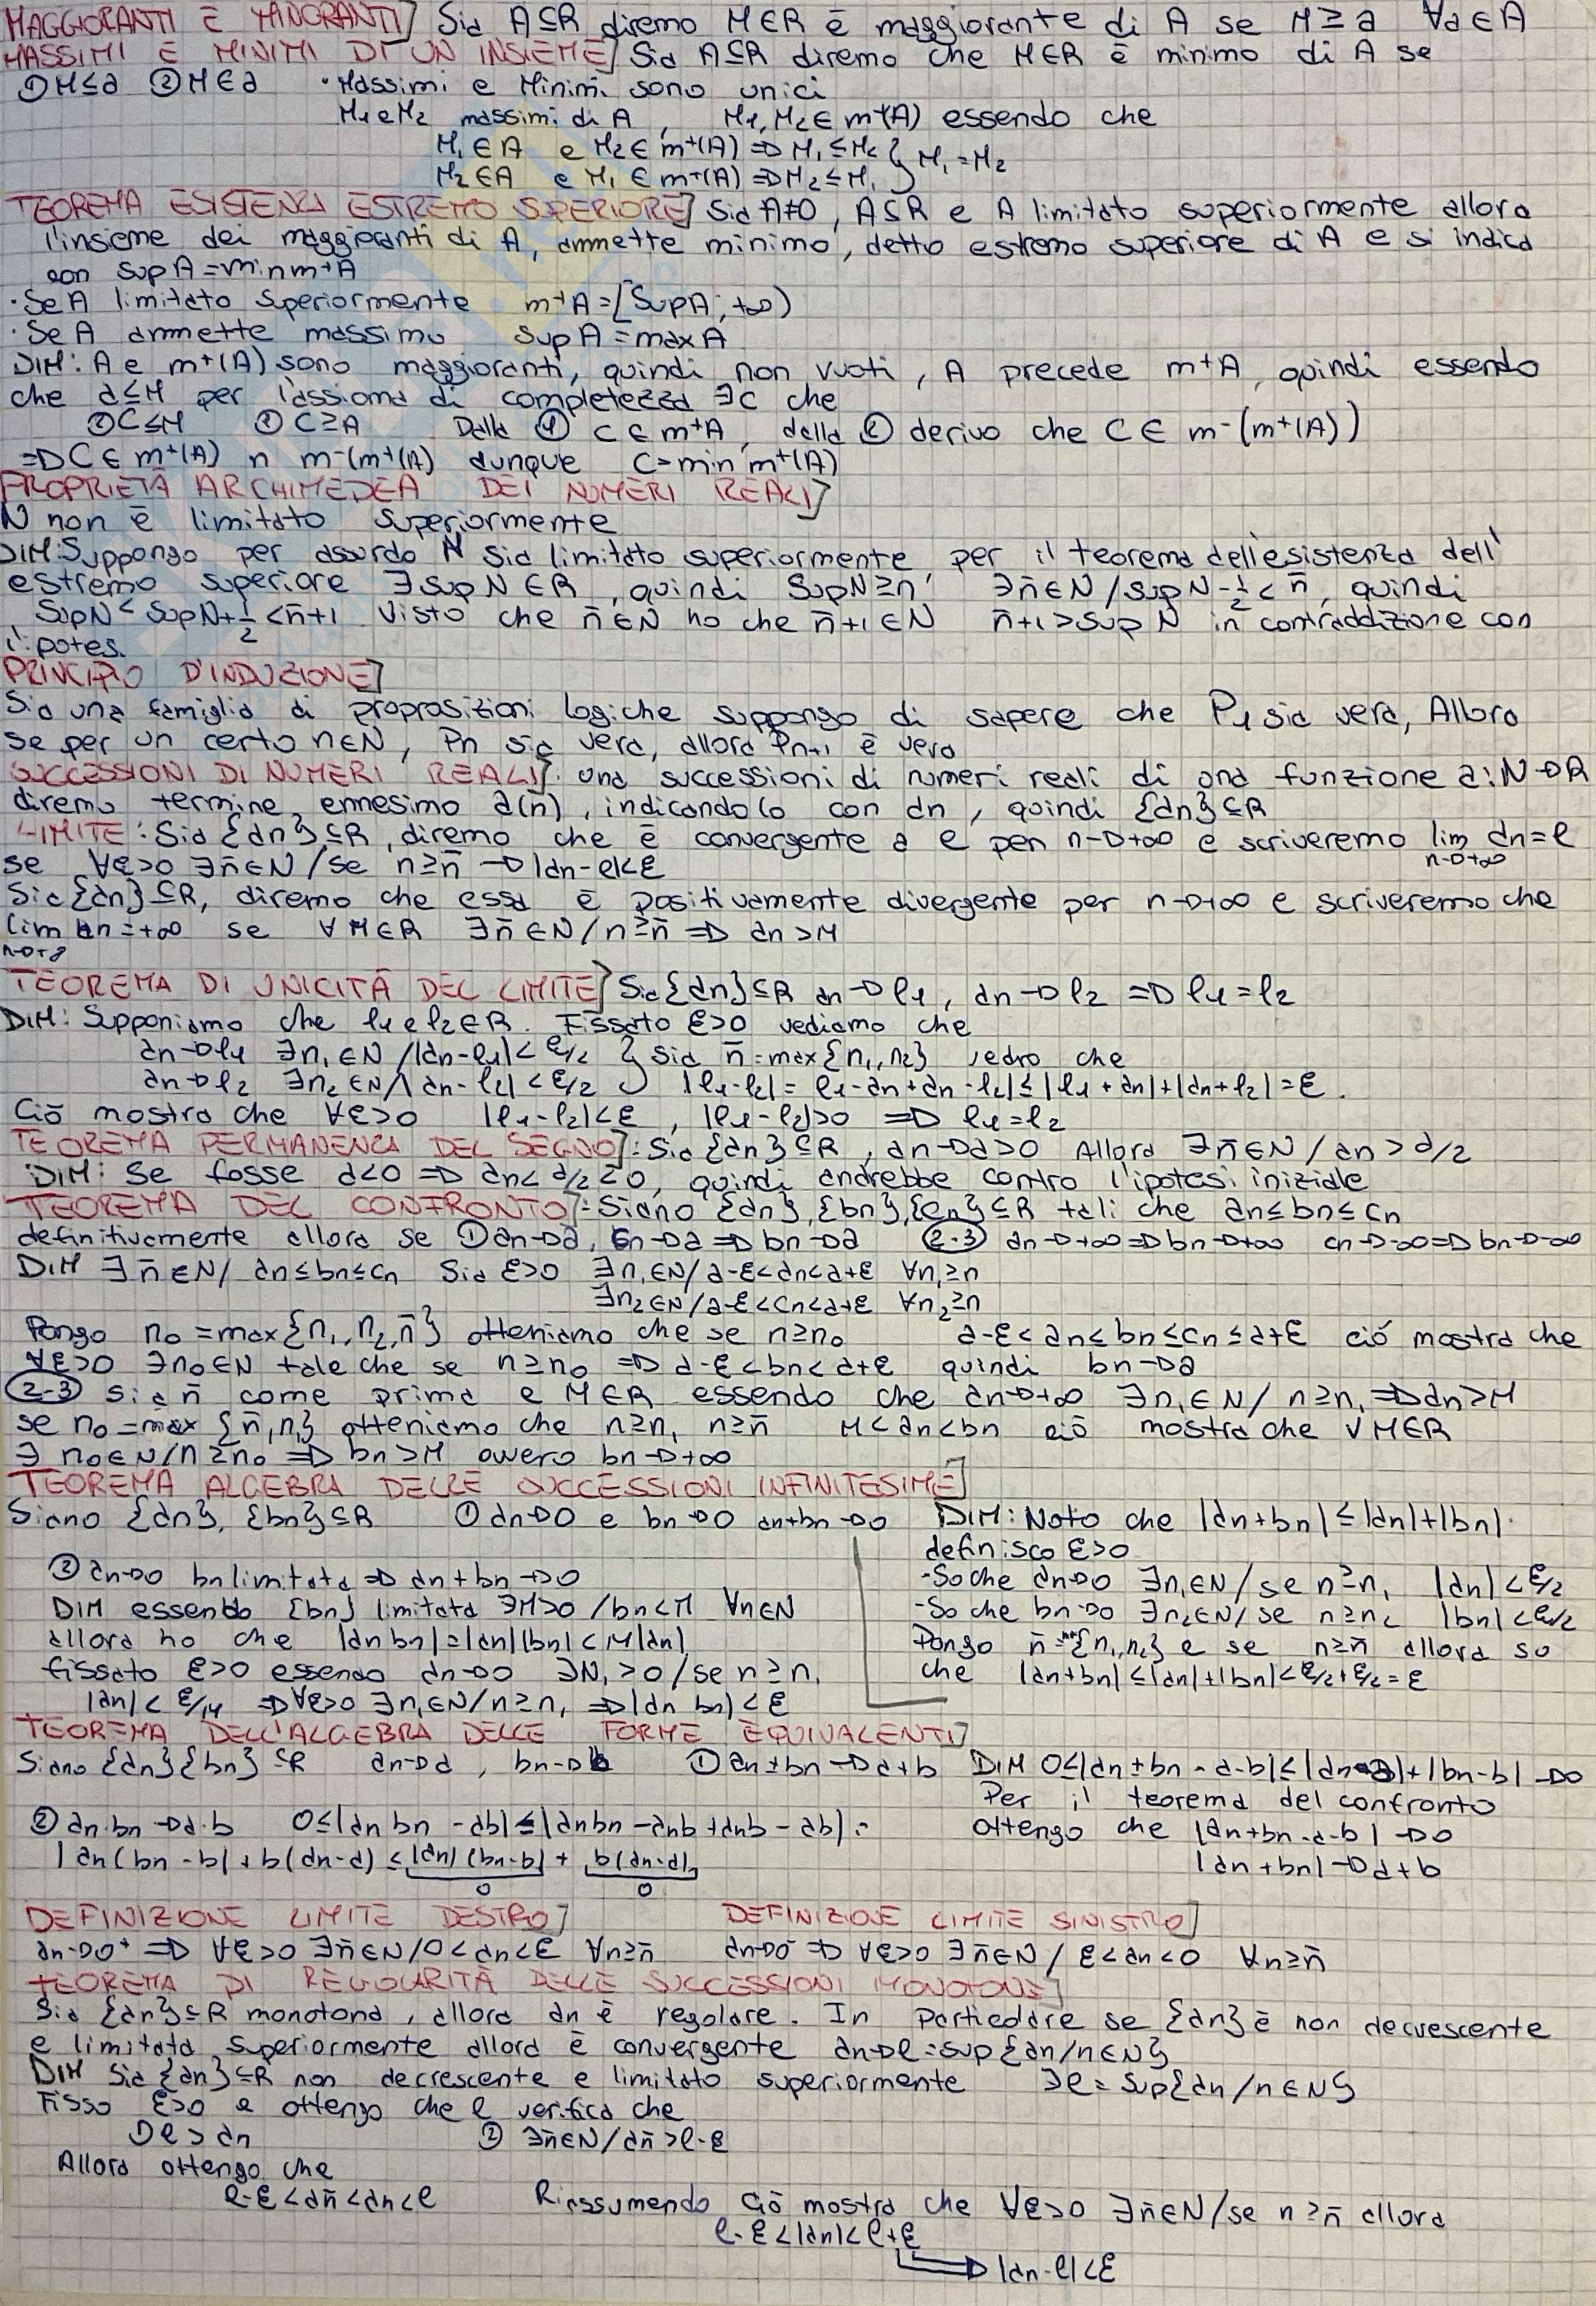 MAGGIORANTI E MINORANTI] Sia A⊆R diremo M∈R è maggiorante di A se M≥a ∀a∈A
MASSIMI E MINIMI DI UN INSIEME] Sia A⊆R diremo che M∈R è minimo di A se
①M≤a ②M∈a • Massimi e Minimi sono unici
M₁ e M₂ massimi di A, M₁,M₂∈ m⁺(A) essendo che
M₁∈A e M₂∈ m⁺(A) => M₁≤M₂ } M₁=M₂
M₂∈A e M₁∈m⁺(A) => M₂≤M₁
TEOREMA ESISTENZA ESTREMO SUPERIORE] Sia A≠0, A⊆R e A limitato superiormente allora
l'insieme dei maggioranti di A, ammette minimo, detto estremo superiore di A e si indica
con SupA=min m⁺A
• Se A limitato Superiormente m⁺A=[SupA; +∞)
• Se A ammette massimo SupA=maxA
DIM: A e m⁺(A) sono maggioranti, quindi non vuoti, A precede m⁺A, quindi essendo
che a≤M per l'assioma di completezza ∃c che
①C≤M ②C≥A Dalla ① C∈m⁺A, dalla ② derivo che C∈ m⁻(m⁺(A))
=> C∈m⁺(A) ∩ m⁻(m⁺(A) dunque C=min m⁺(A)
PROPRIETÀ ARCHIMEDEA DEI NUMERI REALI]
N non è limitato superiormente
DIM: Suppongo per assurdo N sia limitato superiormente, per il teorema dell'esistenza dell'
estremo superiore ∃SupN∈R, quindi SupN≥n ∃n̄∈N/SupN-1/2<n̄, quindi
SupN<SupN+1/2<n̄+1. Visto che n̄∈N ho che n̄+1∈N n̄+1>SupN in contraddizione con
l'ipotes.
PRINCIPIO D'INDUZIONE]
Sia una famiglia di proprosizioni logiche suppongo di sapere che P₁ sia vera, Allora
se per un certo n∈N, Pn sia vera, allora Pn+1 è vera
SUCCESSIONI DI NUMERI REALI]: una successioni di numeri reali di una funzione a:N→R
diremo termine ennesimo a(n), indicandolo con an, quindi {an}⊆R
LIMITE: Sia {an}⊆R, diremo che è convergente a ℓ per n→+∞ e scriveremo lim an=ℓ
n→+∞
se ∀ε>0 ∃n̄∈N/se n≥n̄ → |an-ℓ|<ε
Sia {an}⊆R, diremo che essa è positivamente divergente per n→+∞ e scriveremo che
lim an=+∞ se ∀M∈R ∃n̄∈N/n≥n̄ => an>M
n→+∞
TEOREMA DI UNICITÀ DEL LIMITE] Sia {an}⊆R an→ℓ₁, an→ℓ₂ => ℓ₁=ℓ₂
DIM: Supponiamo che ℓ₁ e ℓ₂∈R. Fissato ε>0 vediamo che
an→ℓ₁ ∃n₁∈N/|an-ℓ₁|<ε/2 } Sia n̄=max{n₁,n₂} vedro che
an→ℓ₂ ∃n₂∈N/|an-ℓ₂|<ε/2 |ℓ₁-ℓ₂|= ℓ₁-an+an-ℓ₂|≤|ℓ₁+an|+|an+ℓ₂|=ε.
Ciò mostra che ∀ε>0 |ℓ₁-ℓ₂|<ε, |ℓ₁-ℓ₂|>0 => ℓ₁=ℓ₂
TEOREMA PERMANENZA DEL SEGNO]: Sia {an}⊆R, an→a>0 Allora ∃n̄∈N/an>a/2
DIM: Se fosse a<0 => an<a/2<0, quindi andrebbe contro l'ipotesi iniziale
TEOREMA DEL CONFRONTO]: Siano {an},{bn},{cn}⊆R tali che an≤bn≤cn
definitivamente allora se ①an→a, cn→a => bn→a ②-③ an→+∞ => bn→+∞ cn→-∞ => bn→-∞
DIM ∃n̄∈N/an≤bn≤cn Sia ε>0 ∃n₁∈N/a-ε<an<a+ε ∀n₁≥n
∃n₂∈N/a-ε<cn<a+ε ∀n₂≥n
Pongo n₀=max{n₁,n₂,n̄} otteniamo che se n≥n₀ a-ε<an≤bn≤cn≤a+ε ciò mostra che
∀ε>0 ∃n₀∈N tale che se n≥n₀ => a-ε<bn<a+ε quindi bn→a
②-③ sia n̄ come prima e M∈R essendo che an→+∞ ∃n₁∈N/ n≥n₁ => an>M
se n₀=max{n̄,n₁} otteniamo che n≥n₁ n≥n̄ M<an<bn ciò mostra che ∀M∈R
∃ n₀∈N/n≥n₀ => bn>M ovvero bn→+∞
TEOREMA ALGEBRA DELLE SUCCESSIONI INFINITESIME]
Siano {an}, {bn}⊆R ①an→0 e bn→0 an+bn→0 DIM: Noto che |an+bn|≤|an|+|bn|.
definisco ε>0
②an→0 bn limitata => an+bn→0 -So che an→0 ∃n₁∈N/se n≥n₁ |an|<ε/2
DIM essendo {bn} limitata ∃M>0 /bn<M ∀n∈N -So che bn→0 ∃n₂∈N/se n≥n₂ |bn|<ε/2
allora ho che |an bn|=|an||bn|<M|an| Pongo n̄=max{n₁,n₂} e se n≥n̄ allora so
fissato ε>0 essendo an→0 ∃N₁>0/se n≥n₁ che |an+bn|≤|an|+|bn|<ε/2+ε/2=ε
|an|<ε/M => ∀ε>0 ∃n₁∈N/n≥n₁ => |an bn|<ε
TEOREMA DELL'ALGEBRA DELLE FORME EQUIVALENTI]
Siano {an}{bn}⊆R an→a, bn→b ①an±bn→a+b DIM 0≤|an±bn-a-b|≤|an-a|+|bn-b|→0
Per il teorema del confronto
②an·bn→a·b 0≤|an bn-ab|≤|anbn-anb+anb-ab|= ottengo che |an+bn-a-b|→0
|an(bn-b|+b(an-a)≤|an|(bn-b|+b(an-a) |an+bn|→a+b
0 0
DEFINIZIONE LIMITE DESTRO] DEFINIZIONE LIMITE SINISTRO]
an→0⁺ => ∀ε>0 ∃n̄∈N/0<an<ε ∀n≥n̄ an→0⁻ => ∀ε>0 ∃n̄∈N/ ε<an<0 ∀n≥n̄
TEOREMA DI REGOLARITÀ DELLE SUCCESSIONI MONOTONE]
Sia {an}⊆R monotona, allora an è regolare. In particolare se {an} è non decrescente
e limitata superiormente allora è convergente an→ℓ=sup{an/n∈N}
DIM Sia {an}⊆R non decrescente e limitato superiormente ∃ℓ=Sup{an/n∈N}
Fisso ε>0 e ottengo che ℓ verifica che
①ℓ>an ② ∃n̄∈N/an̄>ℓ-ε
Allora ottengo che
ℓ-ε<an̄<an<ℓ Riassumendo Ciò mostra che ∀ε>0 ∃n̄∈N/se n≥n̄ allora
ℓ-ε<|an|<ℓ+ε
=> |an-ℓ|<ε